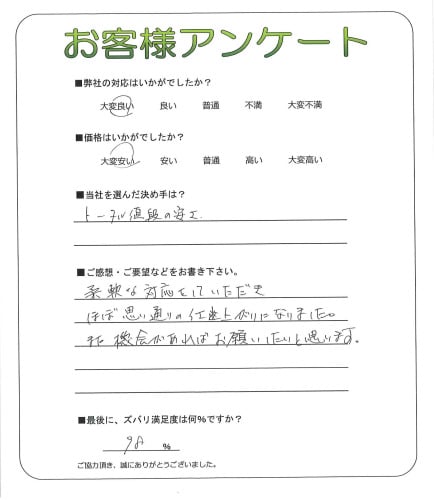 お客様アンケート
■弊社の対応はいかがでしたか？
大変良い 良い 普通 不満 大変不満
■価格はいかがでしたか？
大変安い 安い 普通 高い 大変高い
■当社を選んだ決め手は？
トータル値段の安さ
■ご感想・ご要望などをお書き下さい。
柔軟な対応をしていただき
ほぼ思い通りの仕上がりになりました。
また機会があればお願いしたいと思います。
■最後に、ズバリ満足度は何％ですか？
98 ％
ご協力頂き、誠にありがとうございました。